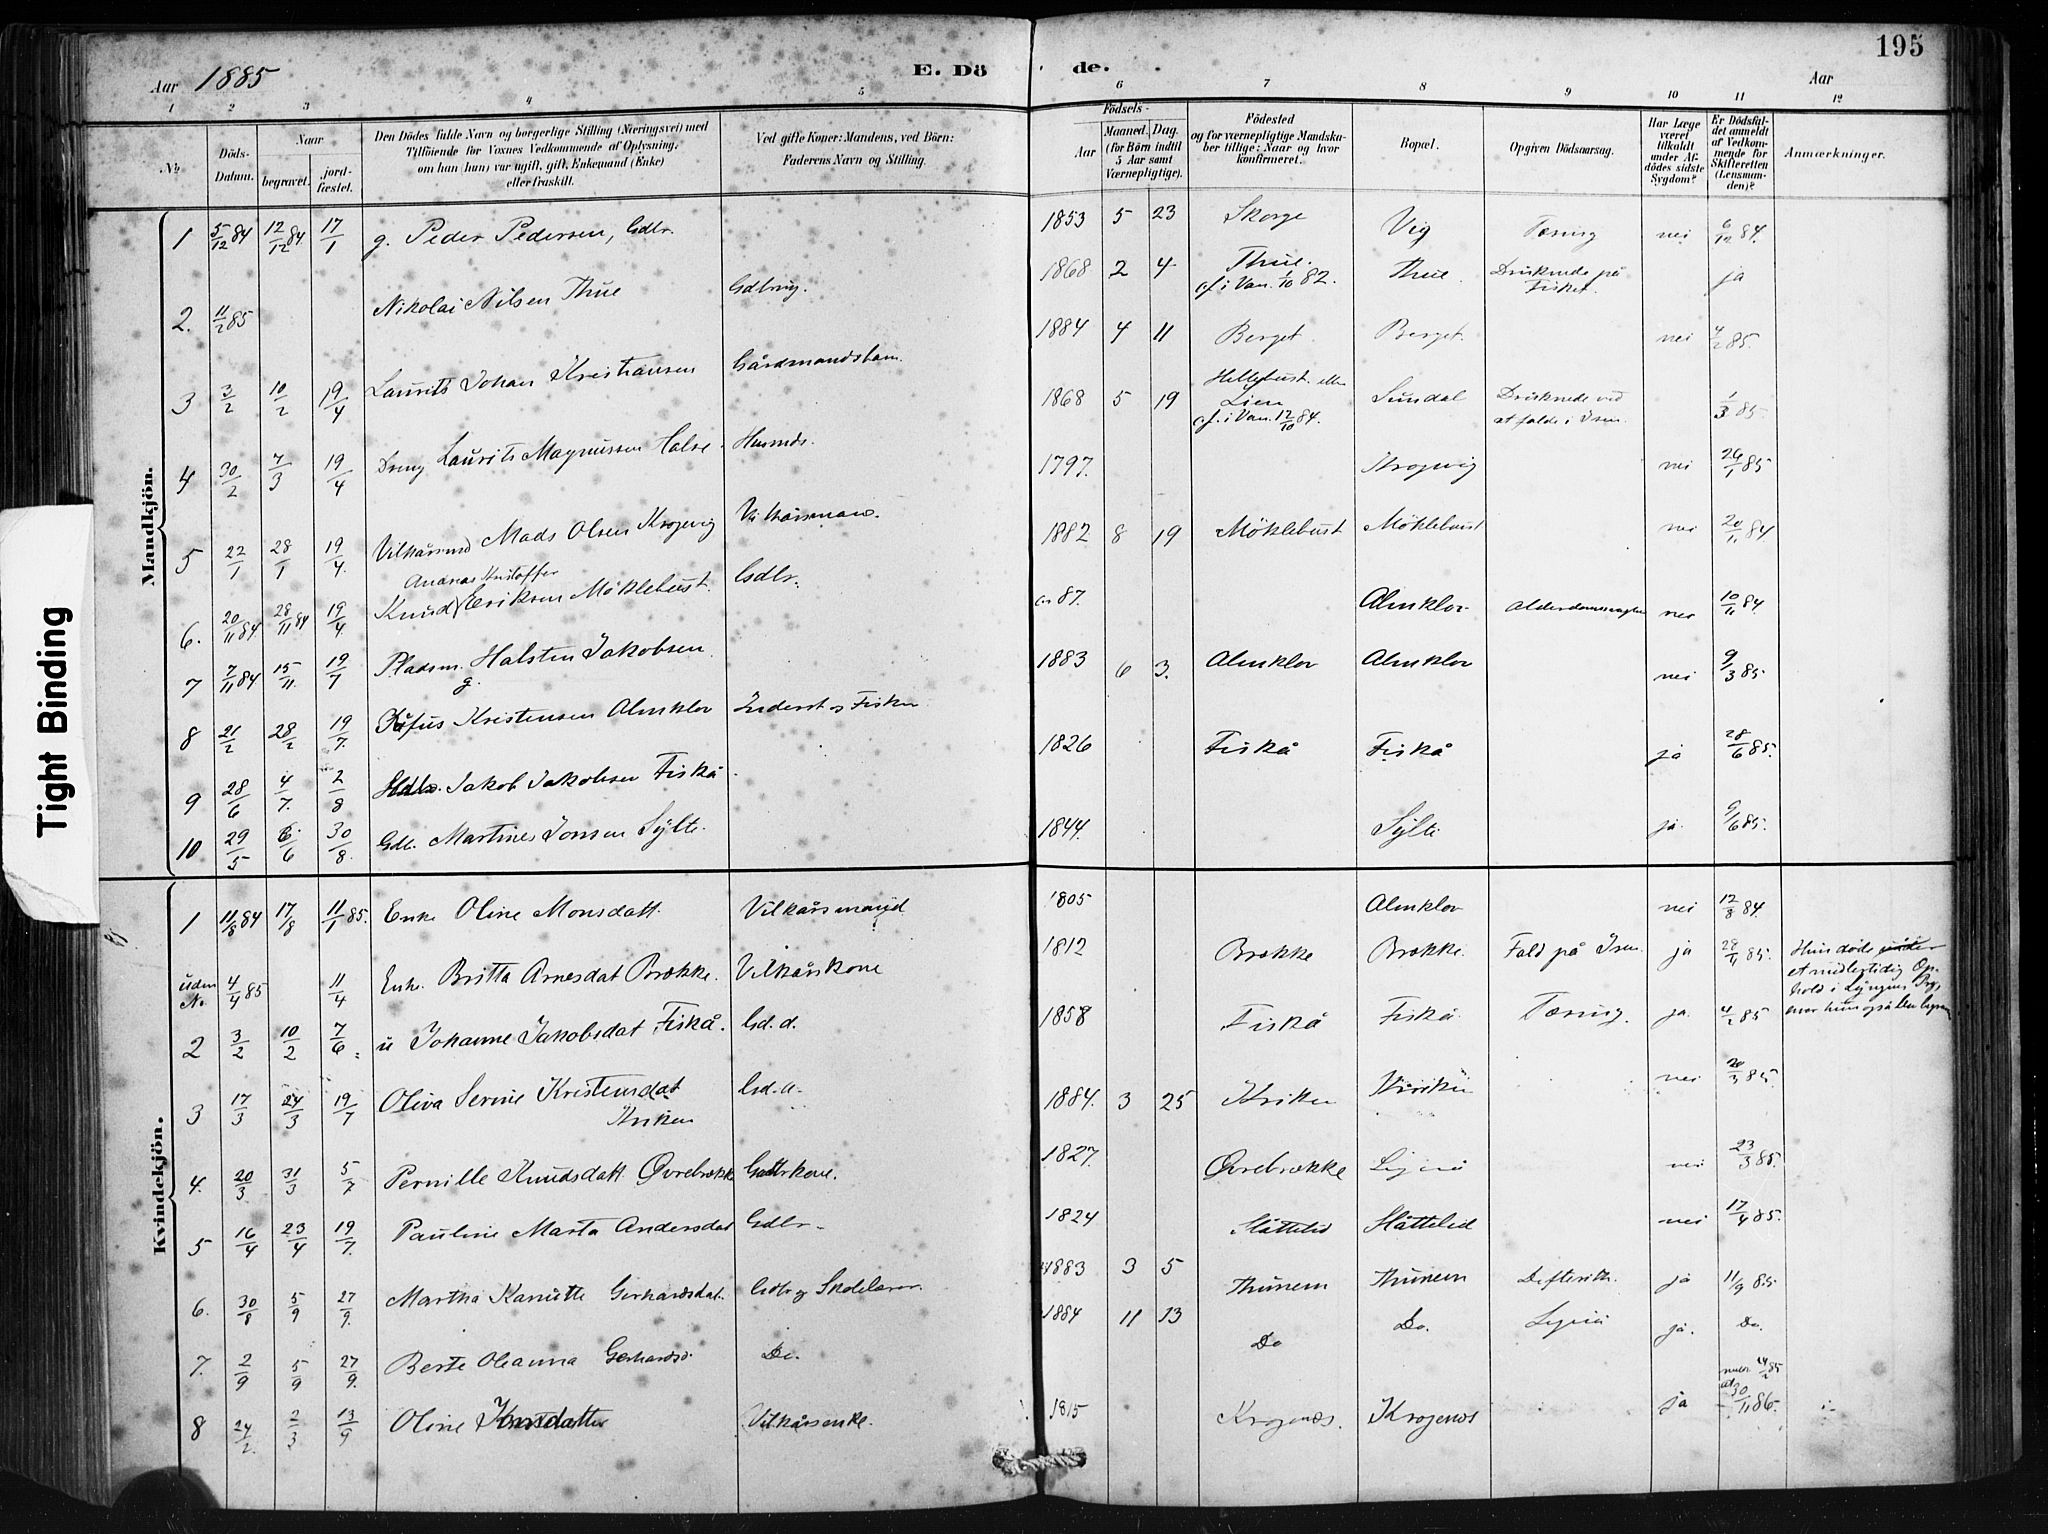 195
Aar 1885
E. Dö de.
Aar
1 2 3 4 5 6 7 8 9 10 11 12
No.
Döds-Datum.
Naar
begravet.
jord-fæstet.
Den Dödes fulde Navn og borgerlige Stilling (Næringsvei) med
Tilföiende for Voxnes Vedkommende af Oplysning,
om han (hun) var ugift, gift, Enkemand (Enke)
eller fraskilt.
Ved gifte Koner: Mandens, ved Börn:
Faderens Navn og Stilling.
Födsels-
Aar
Maaned. Dag.
(for Börn indtil
5 Aar samt
Værnepligtige).
Födested
og for værnepligtige Mandska-
ber tillige: Naar og hvor
konfirmeret.
Bopæl.
Opgiven Dödsaarsag.
Har Læge
været
tilkaldt
under Af-
dödes sidste
Sygdom?
Er Dödsfal-
det anmeldt
af Vedkom-
mende for
Skifteretten
(Lensman-
den)?
Anmærkninger.
Mandkjön.
1 5/12 84 12/12 84 17/1 g. Peder Pedersen, Gdbr. 1853 5 23 Skorge Vig Tæring nei 6/12 84.
2. 11/2 85 Nikolai Nilsen Thue Gdbrug. 1868 2 4 Thue. cf. i Van. 1/10 82. Thue. Druknede på Fisket. ja
3 3/2 10/2 19/4 Laurits Johan Kristiansen Gårdmandsbarn. 1884 4 11 Berget Berget. nei 4/2 85.
4 30/2 7/3 19/4 Dreng Laurits Magnussen Halse. Husmds. 1868 5 19 Hellebust. eller Lien cf. i Van. 12/10 84. Sundal Druknede ved at falde i Isen. 1/3 85.
5 22/1 28/1 19/4. Vilkårsmd Mads Olsen Krogevig Vilkårsmand. 1797. Krogevig nei 26/1 85
6. 20/11 84 28/11 84 19/4 Knud Eriksen Möklebust. Gdbr. 1882 8 19 Möklebust Möklebust nei 20/11 84.
7 7/11 84 15/11. 19/7 Pladsm. g. Halsten Jakobsen. 87. Almklov nei 10/11 84.
8 21/2 28/2 19/7. Kristensen Almklov Inderst og Fisker 1883 6 3. Almklov Almklov nei 9/3 85
9 28/6 4/7. 2/8 Jakob Jakobsen Fiskå 1826 Fiskå Fiskå ja 28/6 85.
10 29/5 6/6 30/8. Gdbr. Martines Jonsen Sylte. 1844. Sylte ja. 9/6 85.
Kvindekjön.
1 11/8 84 17/8 11/1 85. Enke Oline Monsdatt. Vilkårsmand 1805 Almklov nei 12/8 84.
uden No. 4/4 85 11/4 Enke. Britta Arnesdat Brække. Vilkårskone 1812 Brække Brække. Fald på Isen. ja 28/11 85. Hun döde under et midlertidig Op-
hold i
2 3/2 10/2 7/6 u Johanne Jakobsdat Fiskå. Gd. d. 1858 Fiskå Fiskå. Tæring. ja. 4/2 85
3 17/3 24/3 19/7 Oliva Serine Kristensdat Kriken Gd. d. 1884. 3 25 Kriken Kriken nei 20/3 85
4. 20/3 31/3 5/7 Pernille Knudsdatt. Øvrebrække Gdbrkone. 1827. Øvrebrække nei 23/3 85.
5 16/4 23/4 19/7. Pauline Marta Andersdat Gdbr. 1824 Slåttelid Slåttelid nei 17/4 85.
6. 30/8 5/9 27/9. Martha Kanutte Gerhardsdat. Gdbr og Skolelærer. 1883 3 5 Thunem Thunem Defterith. ja 11/9 85
7. 2/9 5/9 27/9. Berte Oleanna Gerhardsd. Do. 1884 11 13 Do Do. ja. Do.
8 24/2. 2/3 13/9 Oline Knudsdatter Vilkårsenke. 1815 Krogenæs. Krogenæs ja 30/11 86.
Tight Binding